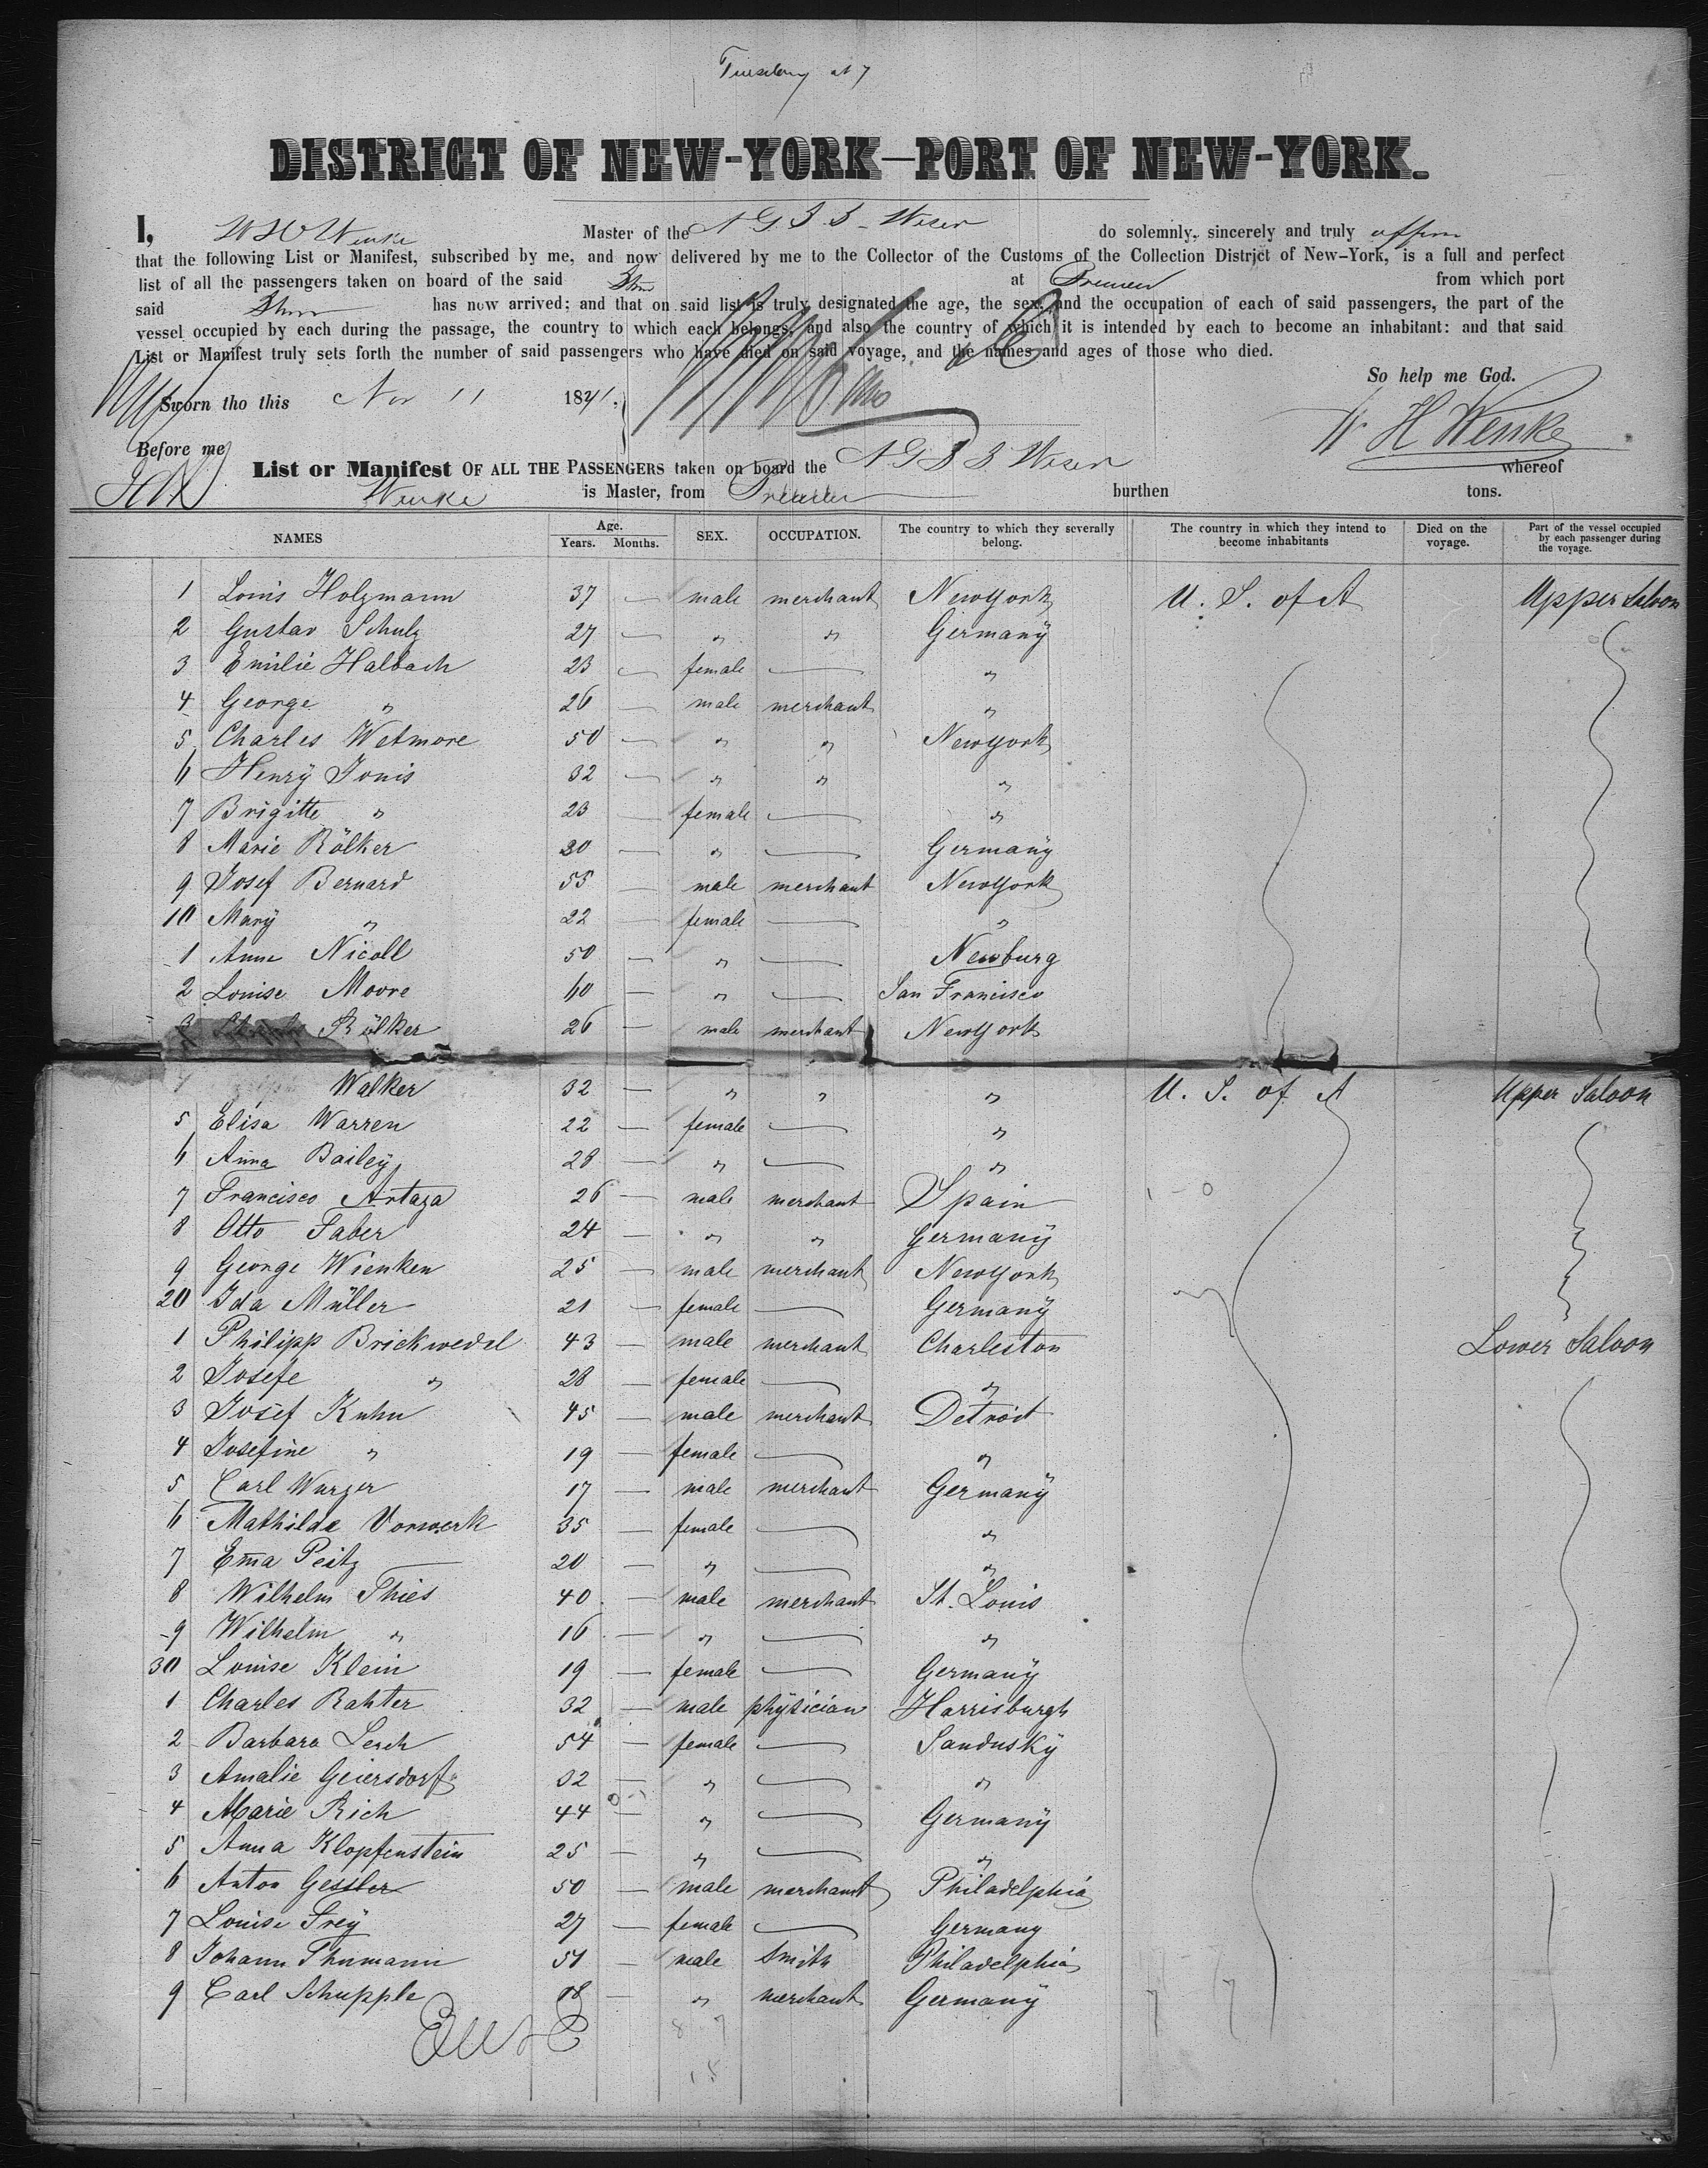 Tuesday at 7
DISTRICT OF NEW-YORK—PORT OF NEW-YORK.
I, W H Wenke Master of the N G S S Weser do solemnly, sincerely and truly affirm
that the following List or Manifest, subscribed by me, and now delivered by me to the Collector of the Customs of the Collection District of New-York, is a full and perfect
list of all the passengers taken on board of the said Stm at Bremen from which port
said Stmr has now arrived; and that on said list is truly designated the age, the sex, and the occupation of each of said passengers, the part of the
vessel occupied by each during the passage, the country to which each belongs, and also the country of which it is intended by each to become an inhabitant: and that said
List or Manifest truly sets forth the number of said passengers who have died on said voyage, and the names and ages of those who died.
So help me God.
Sworn tho this Nov 11 187
W H Wenke
Before me
List or Manifest OF ALL THE PASSENGERS taken on board the N G S S Weser whereof
Wenke is Master, from Bremen burthen tons.
NAMES Age. Years. Months. SEX. OCCUPATION. The country to which they severally belong. The country in which they intend to become inhabitants Died on the voyage. Part of the vessel occupied by each passenger during the voyage.
1 Louis Holzmann 37 — male merchant Newyork U. S. of A Upper Saloon
2 Gustav Schulz 27 — " " Germany
3 Emilie Halbach 23 — female — "
4 George " 26 — male merchant "
5 Charles Wetmore 50 — " " Newyork
6 Henry Jonis 32 — " " "
7 Brigitte " 23 — female — "
8 Marie Rölker 30 — " — Germany
9 Josef Bernard 55 — male merchant Newyork
10 Mary " 22 — female — "
1 Anne Nicoll 50 — " — Newburg
2 Louise Moore 60 — " — San Francisco
3 Rölker 26 — male merchant Newyork
Walker 32 — " " " U. S. of A Upper Saloon
5 Elisa Warren 22 — female — "
6 Anna Bailey 28 — " — "
7 Francisco Artaza 26 — male merchant Spain
8 Otto Faber 24 — " " Germany
9 George Wienken 25 — male merchant Newyork
20 Ida Müller 21 — female — Germany
1 Philipp Brickwedel 43 — male merchant Charleston Lower Saloon
2 Josefe " 28 — female — "
3 Josef Kuhn 45 — male merchant Detroit
4 Josefine " 19 — female — "
5 Carl Wurzer 17 — male merchant Germany
6 Mathilde Vorwerk 35 — female — "
7 Em̄a Peitz 20 — " — "
8 Wilhelm Thies 40 — male merchant St. Louis
9 Wilhelm " 16 — " — "
30 Louise Klein 19 — female — Germany
1 Charles Rahter 32 — male physician Harrisburgh
2 Barbara Lerch 54 — female — Sandusky
3 Amalie Geiersdorf 32 — " — "
4 Marie Rich 44 — " — Germany
5 Anna Klopfenstein 25 — " — "
6 Anton Gessler 50 — male merchant Philadelphia
7 Louise Frey 27 — female — Germany
8 Johann Thumann 51 — male Smith Philadelphia
9 Carl Schupple 18 — " merchant Germany